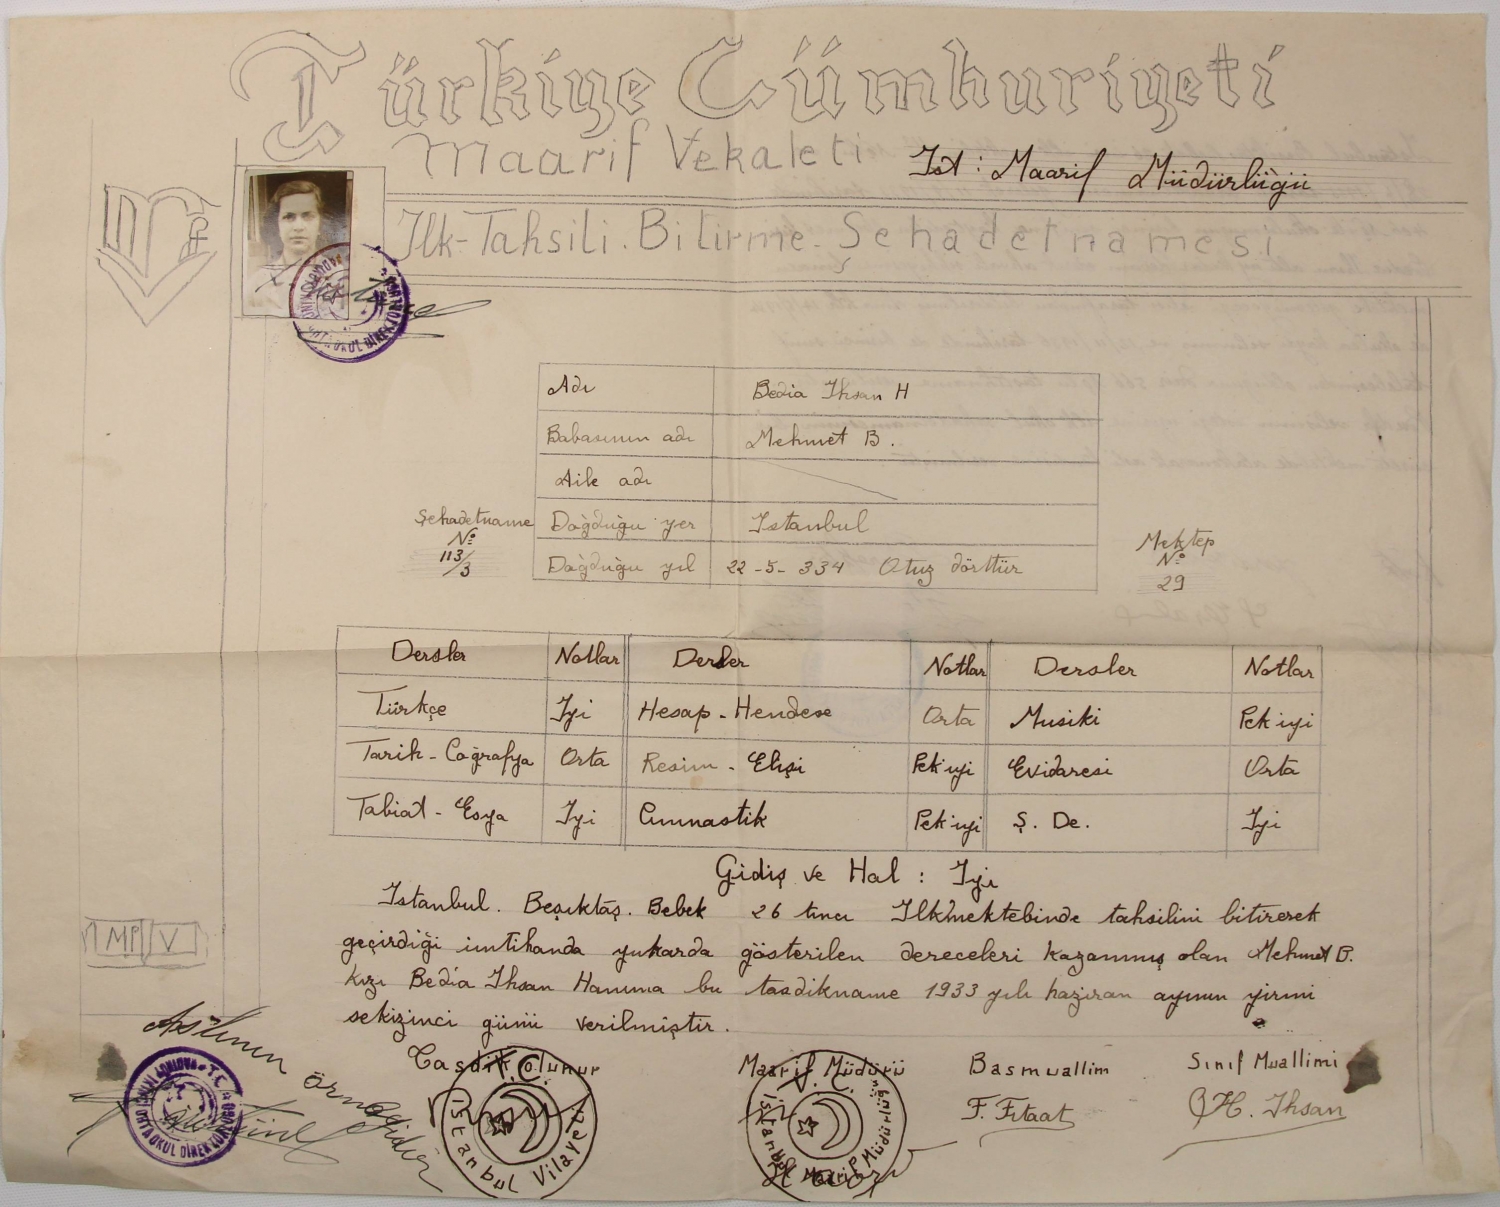 Türkiye Cümhuriyeti
Maarif Vekaleti
Ist: Maarif Müdürlüğü
Ilk-Tahsili. Bitirme. Şehadetnamesi
ORTAOKUL DİREKTÖRLÜĞÜ
Adı Bedia Ihsan H
Babasının adı Mehmet B.
Aile adı
Doğduğu yer Istanbul
Doğduğu yıl 22-5-334 Otuz dörttür
Şehadetname
No
113/3
Mektep
No
29
Dersler Notlar Dersler Notlar Dersler Notlar
Türkçe Iyi Hesap-Hendese Orta Musiki Pek iyi
Tarih-Coğrafya Orta Resim-Elişi Pek iyi Evidaresi Orta
Tabiat-Eşya Iyi Cimnastik Pek iyi Ş. De. Iyi
Gidiş ve Hal: Iyi
Istanbul. Beşıktaş. Bebek 26 tıncı Ilkmektebinde tahsilini bitirerek
geçirdiği imtihanda yukarda gösterilen dereceleri kazanmış olan Mehmet B.
kızı Bedia Ihsan Hanıma bu tasdikname 1933 yılı haziran ayının yirmi
sekizinci günü verilmiştir.
MP V
Aslının örneğidir
T.C.
ORTAOKUL DİREKTÖRLÜĞÜ
Tasdik olunur
T.C.
Istanbul Vilayeti
Maarif Müdürü
T.C.
Istanbul Maarif Müdürlüğü
Basmuallim
F. Fıtaat
Sınıf Muallimi
H. Ihsan